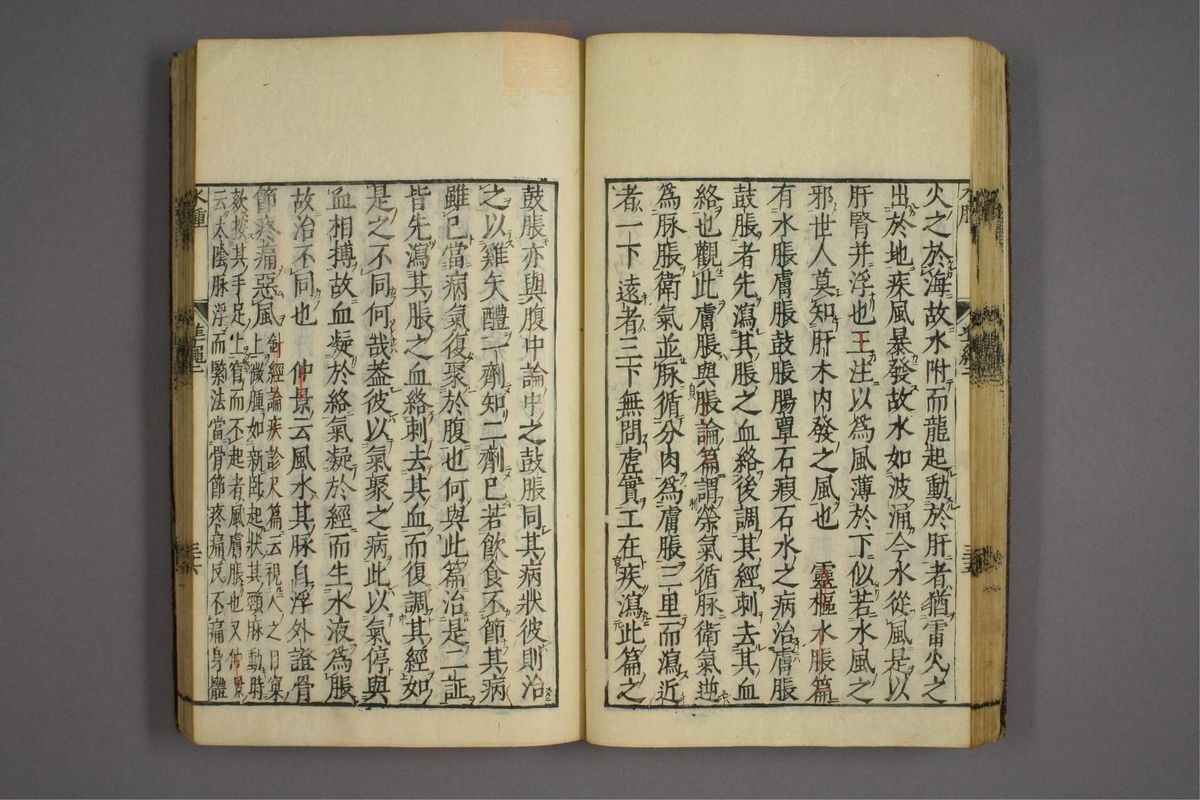 火之於海故水附而龍起動於肝者猶雷火之
出於地疾風暴發故水如波涌今水從風是以
肝腎并浮也王注以爲風薄於下似若水風之
邪世人莫知肝木内發之風也　靈樞水脹篇
有水脹膚脹鼓脹腸覃石瘕石水之病治膚脹
鼓脹者先瀉其脹之血絡後調其經刺去其血
絡也觀此膚脹與脹論篇謂榮氣循脉衛氣逆
爲脉脹衛氣並脉循分肉爲膚脹三里而瀉近
者一下遠者三下無問虛實工在疾瀉此篇之
鼓脹亦與腹中論中之鼓脹同其病狀彼則治
之以雞矢醴一劑知二劑已若飲食不節其病
雖已當病氣復聚於腹也何與此篇治是二証
皆先瀉其脹之血絡刺去其血而復調其經如
是之不同何哉蓋彼以氣聚之病此以氣停與
血相搏故血凝於絡氣凝於經而生水液爲脹
故治不同也　仲景云風水其脉自浮外證骨
節疼痛惡風
針經論疾診尺篇云視人之目窠
上微腫如新臥起狀其頸脉動時
欬按其手足上窅而不起者風膚脹也又仲景
云太陰脉浮而緊法當骨節疼痛反不痛身體
水腫
準繩二